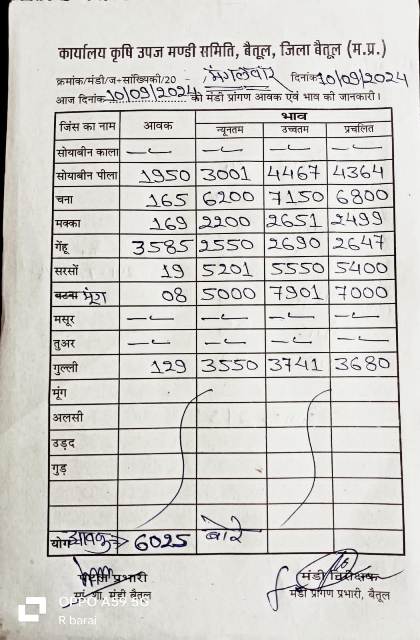 कार्यालय कृषि उपज मण्डी समिति, बैतूल, जिला बैतूल (म.प्र.)
क्रमांक/मंडी/ज-सांख्यिकी/20 - मंगलवार दिनांक 10/09/2024
आज दिनांक 10/09/2024 की मंडी प्रांगण आवक एवं भाव की जानकारी।
जिंस का नाम आवक भाव
न्यूनतम उच्चतम प्रचलित
सोयाबीन काला
सोयाबीन पीला 1950 3001 4467 4364
चना 165 6200 7150 6800
मक्का 169 2200 2651 2499
गेंहू 3585 2550 2690 2647
सरसों 19 5201 5550 5400
बटना मूंग 08 5000 7901 7000
मसूर
तुअर
गुल्ली 129 3550 3741 3680
मूंग
अलसी
उड़द
गुड़
योग आवक 6025 बोरे
प्रभारी मंडी निरीक्षक
मंडी बैतूल मंडी प्रांगण प्रभारी, बैतूल
OPPO A59 5G
R barai